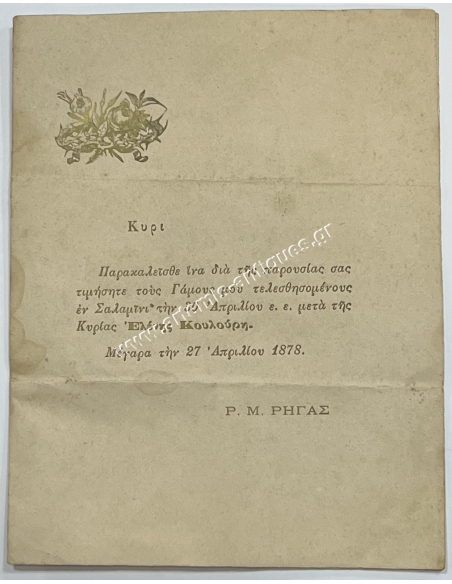 Κυρι
Παρακαλεῖσθε ἵνα διὰ τῆς παρουσίας σας
τιμήσητε τοὺς Γάμους μου τελεσθησομένους
ἐν Σαλαμῖνι τὴν Ἀπριλίου ε. ε. μετὰ τῆς
Κυρίας Ἑλένης Κουλούρη.
Μέγαρα τὴν 27 Ἀπριλίου 1878.
Ρ. Μ. ΡΗΓΑΣ